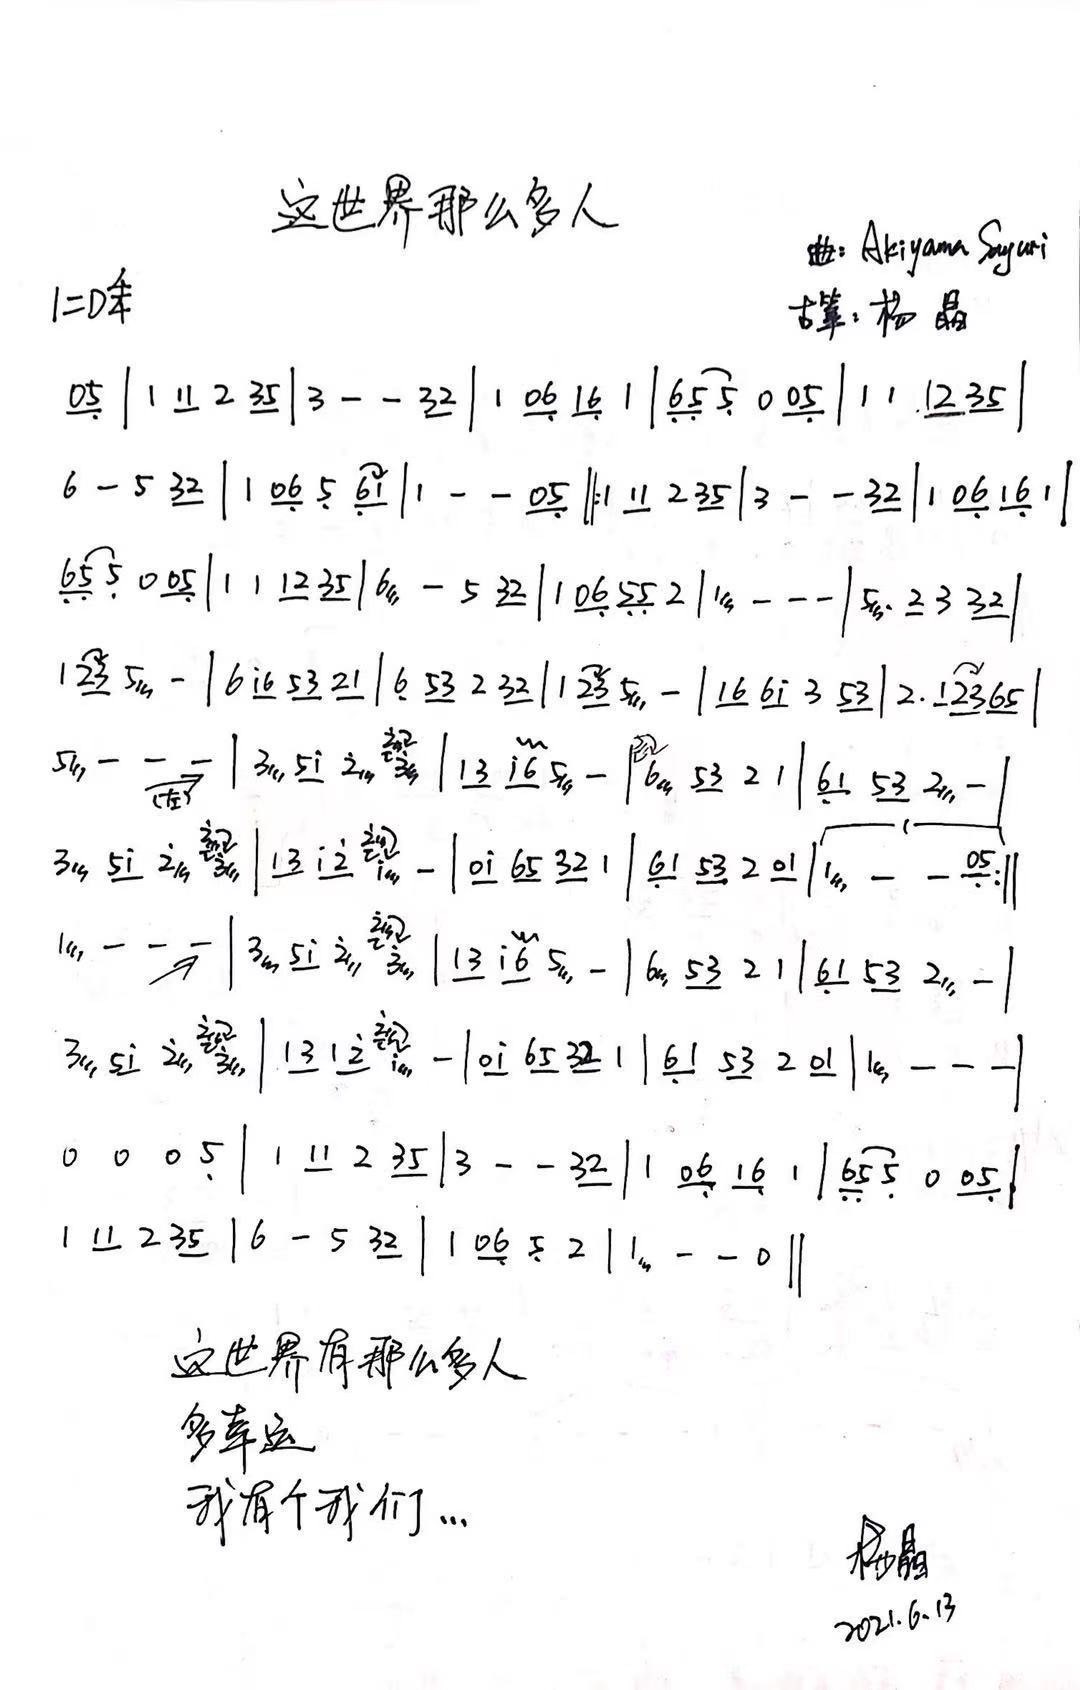 这世界那么多人
曲: Akiyama Sayuri
1=D
古筝: 杨晶
05 | 1 11 2 35 | 3 - - 32 | 1 06 16 1 | 65 5 0 05 | 1 1 12 35 |
6 - 5 32 | 1 06 5 6i | 1 - - 05 ‖: 1 11 2 35 | 3 - - 32 | 1 06 16 1 |
65 5 0 05 | 1 1 12 35 | 6 - 5 32 | 1 06 55 2 | 1 - - - | 5. 2 3 32 |
1 23 5 - | 6 i6 53 21 | 6 53 2 32 | 1 23 5 - | 16 6i 3 53 | 2. 12365 |
5 - - - (左) | 3 5i 2 3 | 13 i6 5 - | 6 53 2 1 | 61 53 2 - |
3 5i 2 3 | 13 i2 i - | 0i 65 32 1 | 61 53 2 01 | 1 - - 05 :‖
1 - - - | 3 5i 2 3 | 13 i6 5 - | 6 53 2 1 | 61 53 2 - |
3 5i 2 3 | 13 12 i - | 0i 65 32 1 | 61 53 2 01 | 1 - - - |
0 0 0 5 | 1 11 2 35 | 3 - - 32 | 1 06 16 1 | 65 5 0 05 |
1 11 2 35 | 6 - 5 32 | 1 06 5 2 | 1 - - 0 ‖
这世界有那么多人
多幸运
我有个我们…
杨晶
2021.6.13